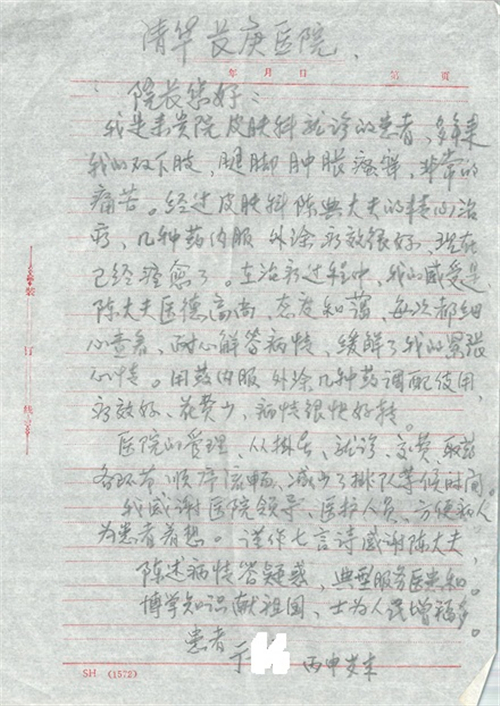 清华长庚医院
年 月 日 第 页
院长您好:
我是来贵院皮肤科就诊的患者,多年来
我的双下肢,腿脚肿胀瘙痒,非常的
痛苦。经过皮肤科陈典大夫的精心治
疗,几种药内服外涂疗效很好,现在
已经痊愈了。在治疗过程中,我的感受是
陈大夫医德高尚,态度和蔼,每次都细
心查看,耐心解答病情,缓解了我的紧张
心情。用药内服外涂几种药调配使用,
疗效好、花费少,病情很快好转。
医院的管理,从挂号、就诊、交费、取药
各环节顺序流畅、减少了排队等候时间。
我感谢医院领导、医护人员、方便病人
为患者着想。谨作七言诗感谢陈大夫,
陈述病情答疑惑,典型服务医患和。
博学知识献祖国、士为人民增福多。
患者
于
丙申岁末
装
订
线
SH (1572)